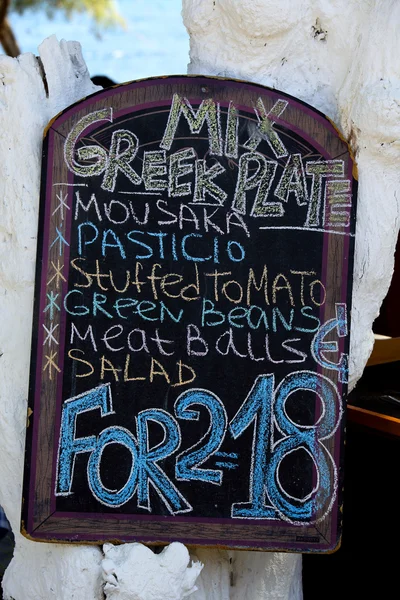 MIX
GREEK PLATE
* MOUSAKA
* PASTICIO
* Stuffed TOMATO
* GREEN BEANS
* Meat Balls
* SALAD
FOR 2 = 18 €